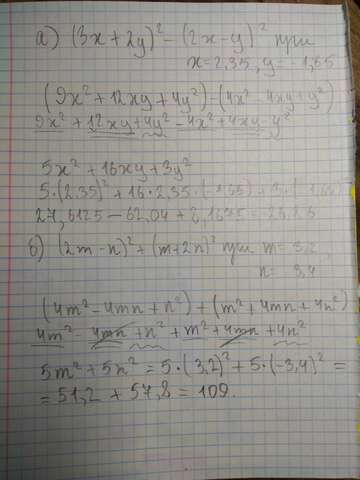 а) (3x + 2y)² - (2x - y)² при
x = 2,35, y = - 1,65
(9x² + 12xy + 4y²) - (4x² - 4xy + y²)
9x² + 12xy + 4y² - 4x² + 4xy - y²
5x² + 16xy + 3y²
5·(2,35)² + 16·2,35·(-1,65) + 3·(-1,65)²
27,6125 - 62,04 + 8,1675 = 26,26
б) (2m - n)² + (m + 2n)² при m = 3,2
n = 3,4
(4m² - 4mn + n²) + (m² + 4mn + 4n²)
4m² - 4mn + n² + m² + 4mn + 4n²
5m² + 5n² = 5·(3,2)² + 5·(-3,4)² =
= 51,2 + 57,8 = 109.